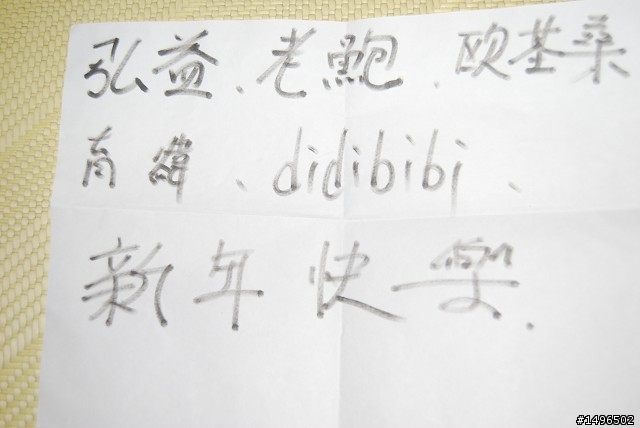 弘益、老鮑、欧基桑
育偉、didibibi、
新年快樂.
#1496502